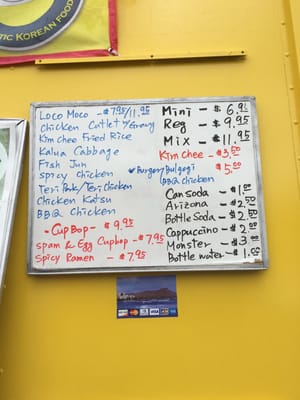 TIC KOREAN FOOD
LOCO MOCO - $7.95/11.95
Chicken Cutlet w/Gravy
Kim chee Fried Rice
Kalua Cabbage
Fish Jun
Spicy Chicken
Teri Pork/Teri chicken
Chicken Katsu
BBQ Chicken
- CUPBOP - $9.95
Spam & Egg Cupbop - $7.95
Spicy Ramen - $7.95
Mini - $6.95
Reg - $9.95
Mix - $11.95
Kim Chee - $3.50
Burger/Bulgogi $5.00
BBQ chicken
Can Soda - $1.00
Arizona - $2.50
Bottle Soda - $2.50
Cappuccino - $2.00
Monster - $3.00
Bottle water - $1.00
VISA